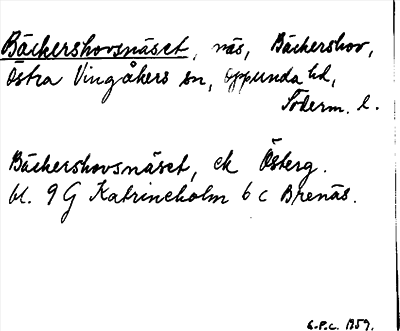 Bäckershovsnäset, näs, Bäckershov,
Östra Vingåkers sn, Oppunda hd,
Söderm. l.
Bäckershovsnäset, ek Österg.
bl. 9 G Katrineholm 6 c Brenäs.
G.P.C. 1959.